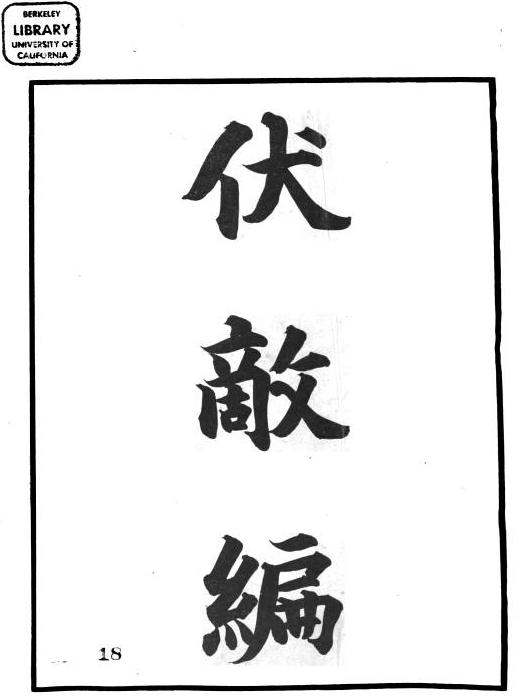 BERKELEY
LIBRARY
UNIVERSITY OF
CALIFORNIA
伏敵編
18